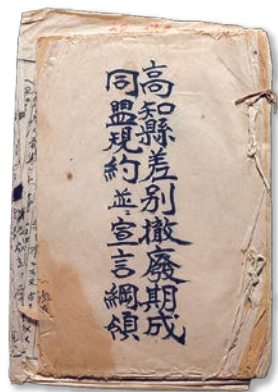 高知縣差別撤廢期成
同盟規約並ニ宣言綱領